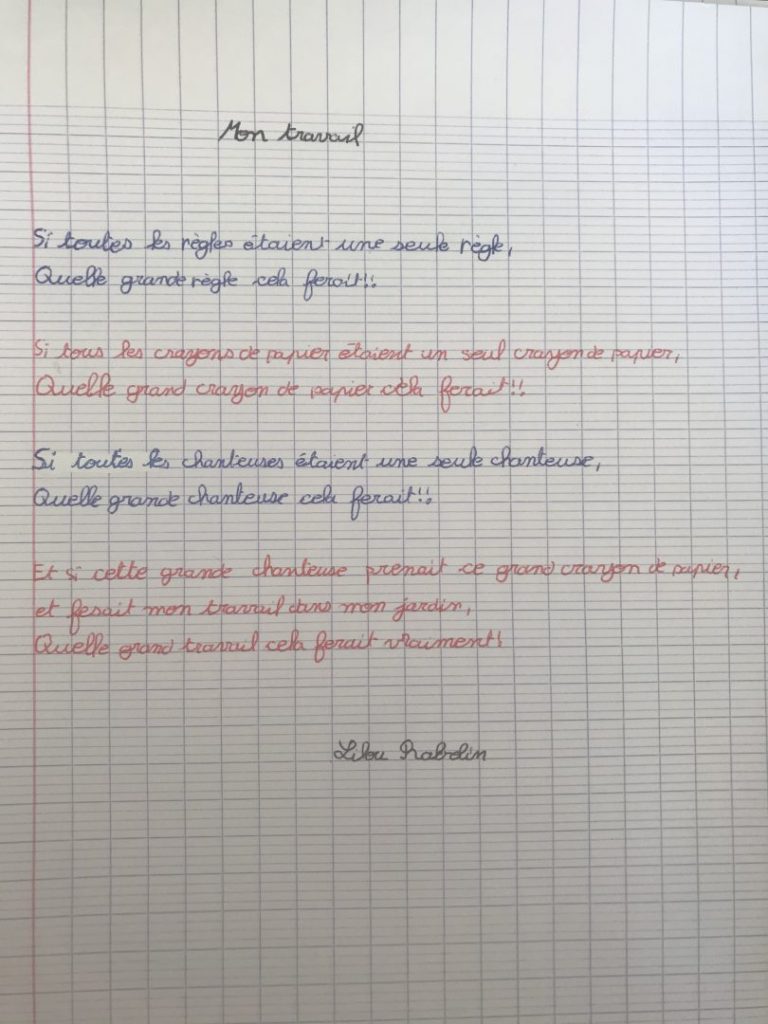 Mon travail
Si toutes les règles étaient une seule règle,
Quelle grande règle cela ferait!!
Si tous les crayons de papier étaient un seul crayon de papier,
Quelle grand crayon de papier cela ferait!!
Si toutes les chanteuses étaient une seule chanteuse,
Quelle grande chanteuse cela ferait!!
Et si cette grande chanteuse prenait ce grand crayon de papier,
et fesait mon travail dans mon jardin,
Quelle grand travail cela ferait vraiment!
Lilou Rabolin